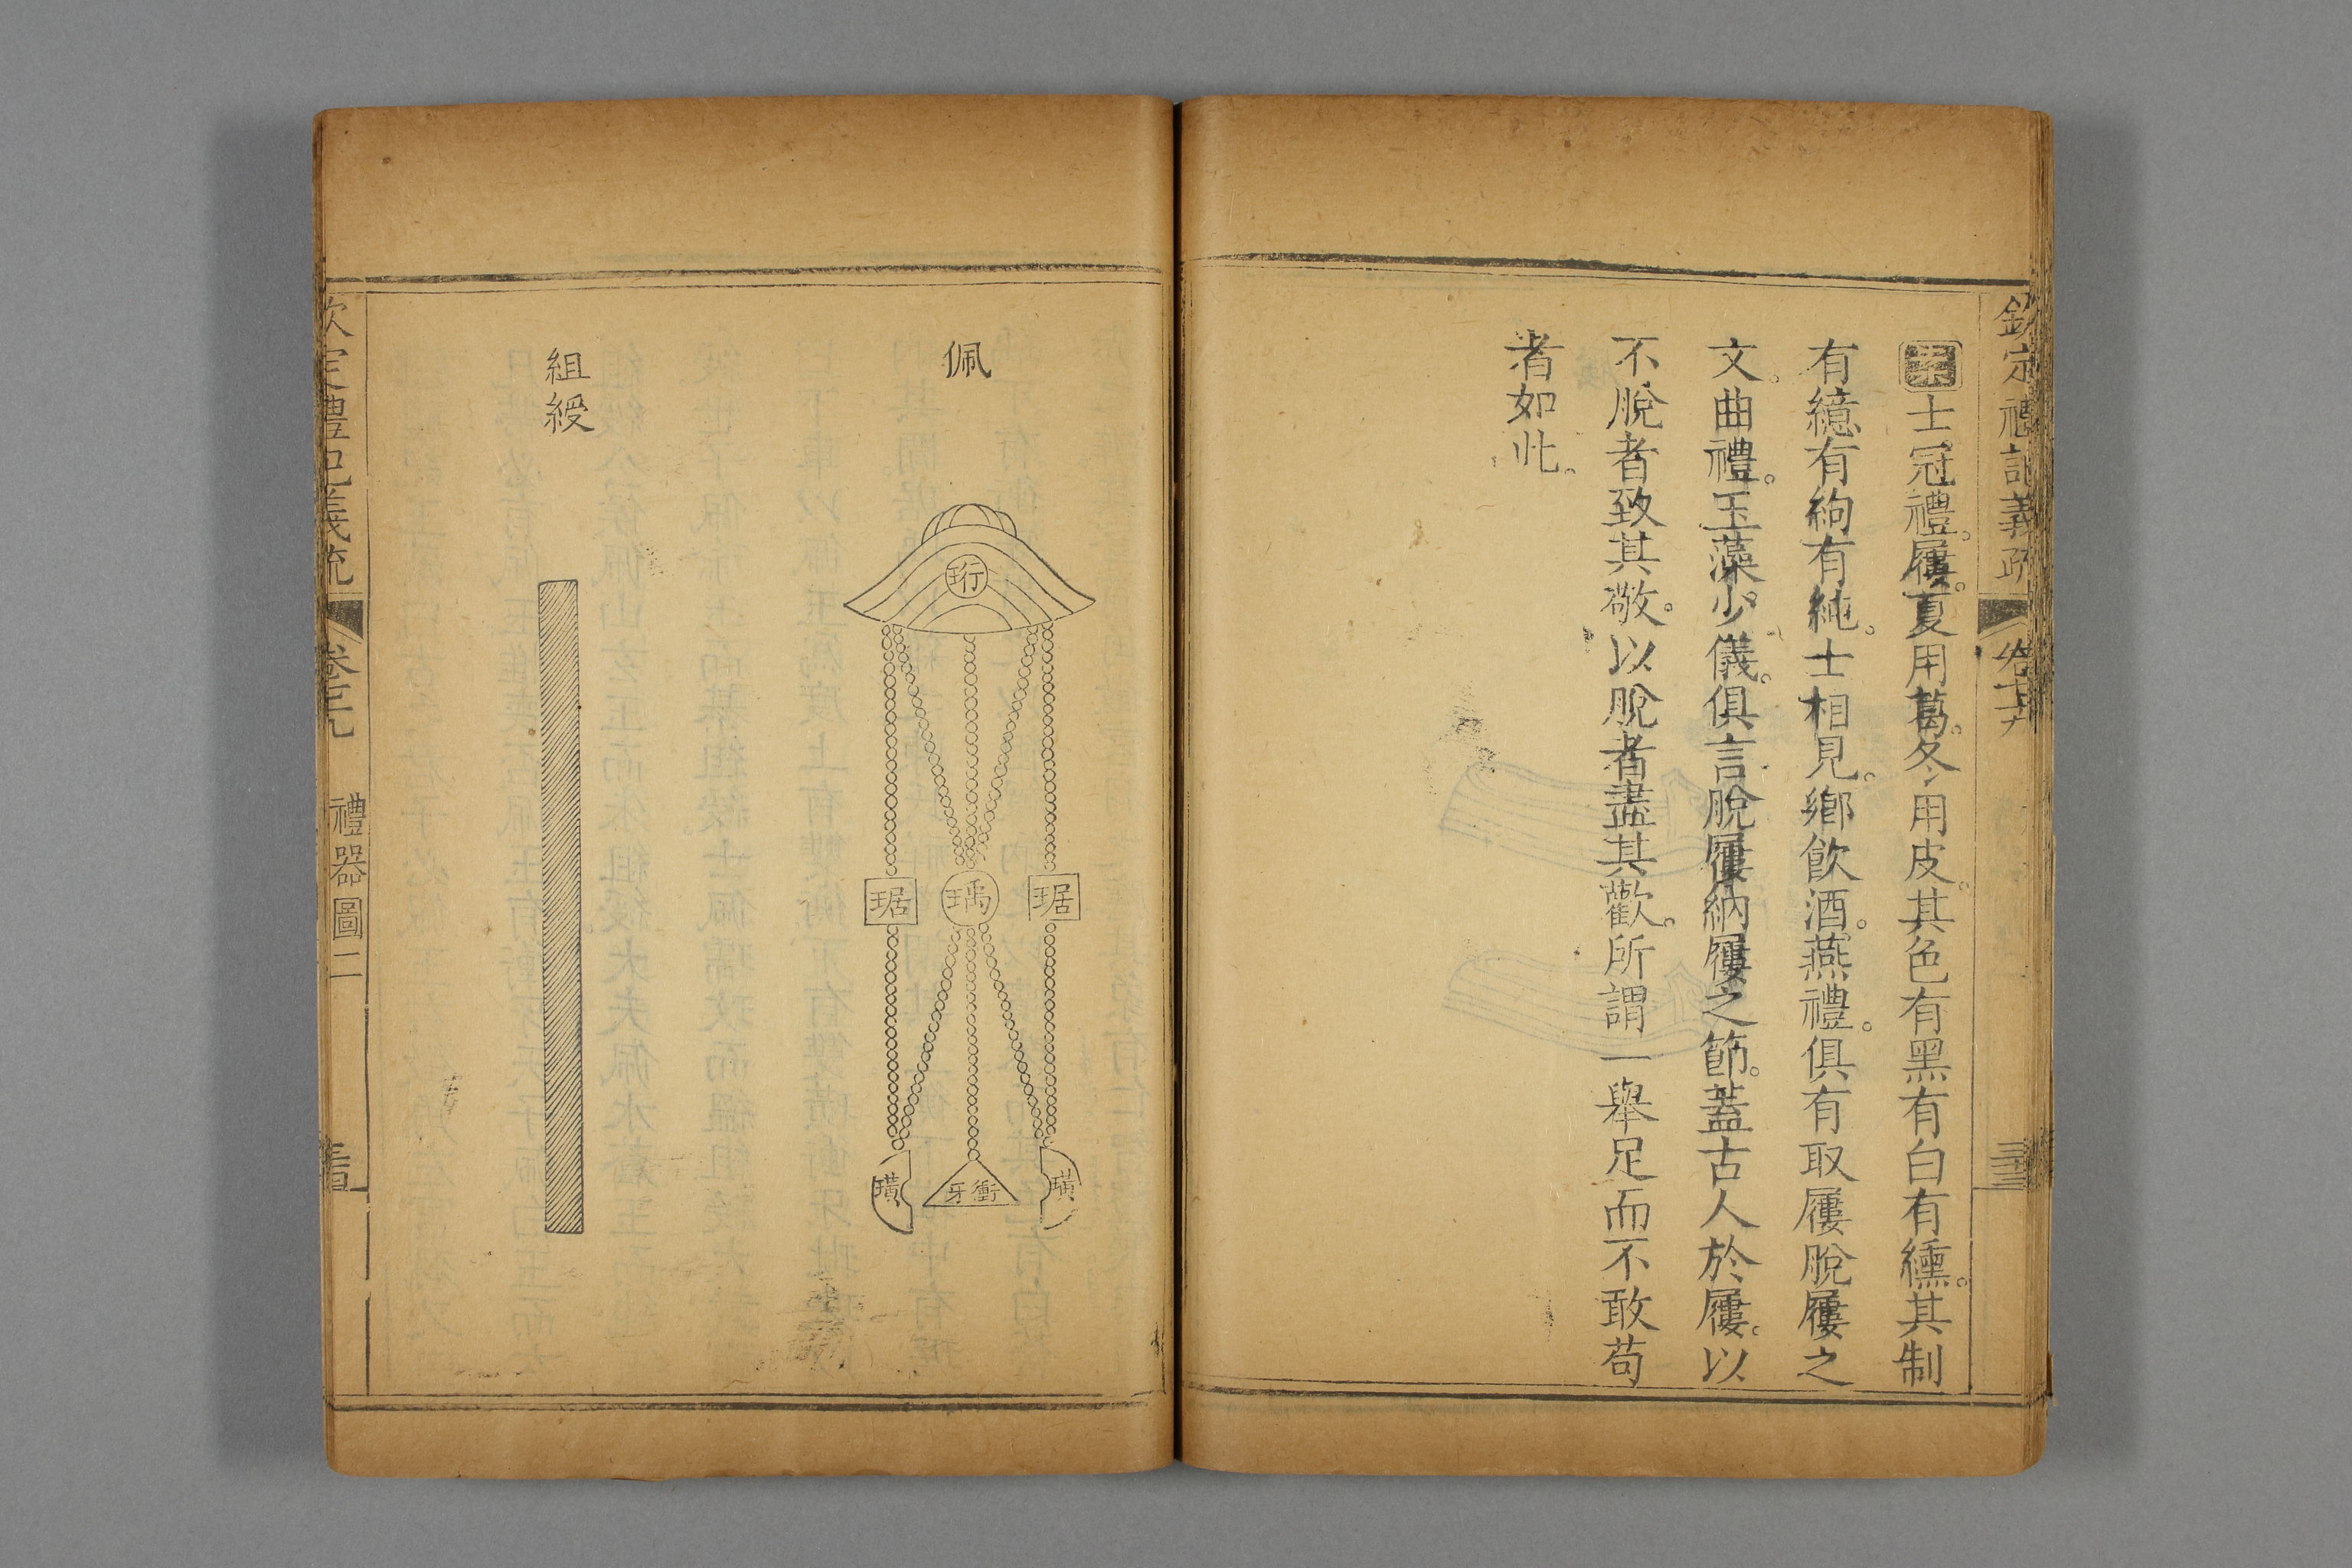 欽定禮記義疏
案士冠禮。屨。夏用葛。冬用皮。其色有黑有白有纁。其制
有繶有絇有純。士相見。鄉飲酒。燕禮。俱有取屨脫屨之
文。曲禮。玉藻。少儀。俱言脫屨納屨之節。蓋古人於屨。以
不脫者致其敬。以脫者盡其歡。所謂一舉足而不敢苟
者如此。
佩
珩
琚
瑀
琚
璜
衝牙
璜
組綬
欽定禮記義疏
禮器圖二